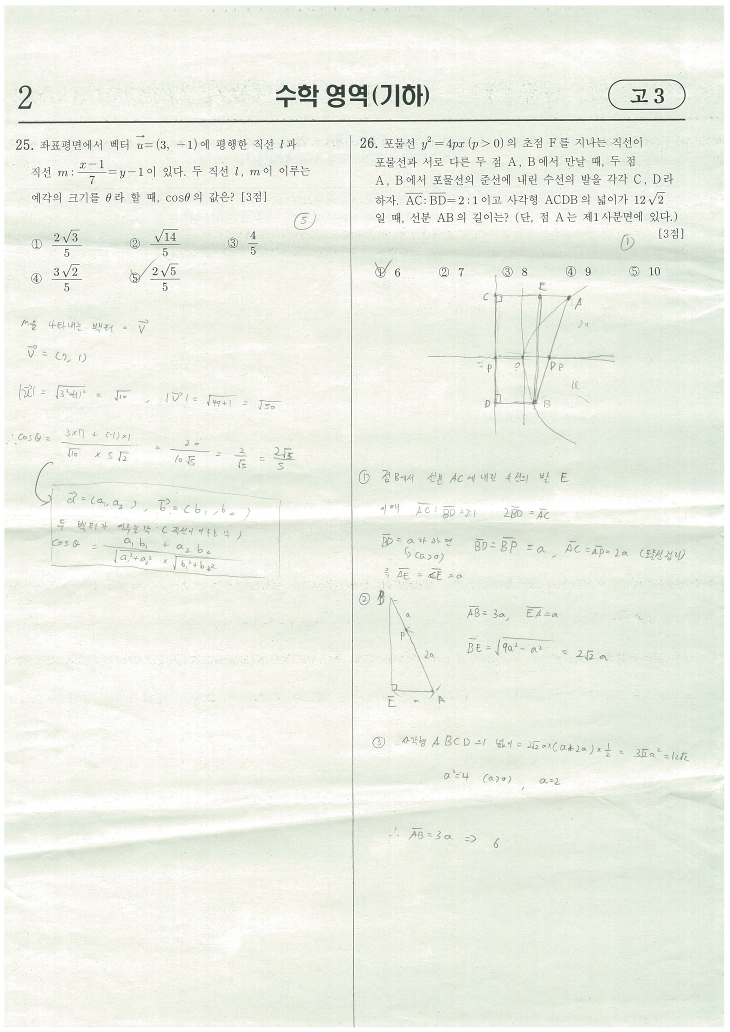 2
수학 영역(기하)
고 3
25. 좌표평면에서 벡터 a=(3, -1)에 평행한 직선 l과
직선 m : (x-1)/7=y-1이 있다. 두 직선 l, m이 이루는
예각의 크기를 θ라 할 때, cosθ의 값은? [3점]
⑤
① 2√3/5 ② √14/5 ③ 4/5
④ 3√2/5 ⑤ 2√5/5
m을 나타내는 벡터 = V
V = (7, 1)
= √10 , |V| = √49+1 = √50
∴ cosθ = 3×7 + (-1)×1 / √10 × 5√2 = 20 / 10√5 = 2/√5 = 2√5/5
a = (a₁, a₂), b = (b₁, b₂)
두 벡터가 이루는 각
cosθ = a₁b₁ + a₂b₂ / √a₁²+a₂² × √b₁²+b₂²
26. 포물선 y²=4px (p>0)의 초점 F를 지나는 직선이
포물선과 서로 다른 두 점 A, B에서 만날 때, 두 점
A, B에서 포물선의 준선에 내린 수선의 발을 각각 C, D라
하자. AC : BD=2 : 1이고 사각형 ACDB의 넓이가 12√2
일 때, 선분 AB의 길이는? (단, 점 A는 제1사분면에 있다.)
[3점]
①
① 6 ② 7 ③ 8 ④ 9 ⑤ 10
C E A
2a
-P O P
D B
① 점 B에서 선분 AC에 내린 수선의 발 E
이때 AC : BD = 2:1 2BD = AC
BD = a라 하면 BD = BP = a, AC = AP = 2a
(a>0)
즉 AE = CE = a
② B
a
P
2a
E a A
AB = 3a, EA = a
BE = √9a²-a² = 2√2 a
③ 사각형 ABCD의 넓이 = 2√2a×(a+2a)×1/2 = 3√2a² = 12√2
a²=4 (a>0) , a=2
∴ AB = 3a ⇒ 6